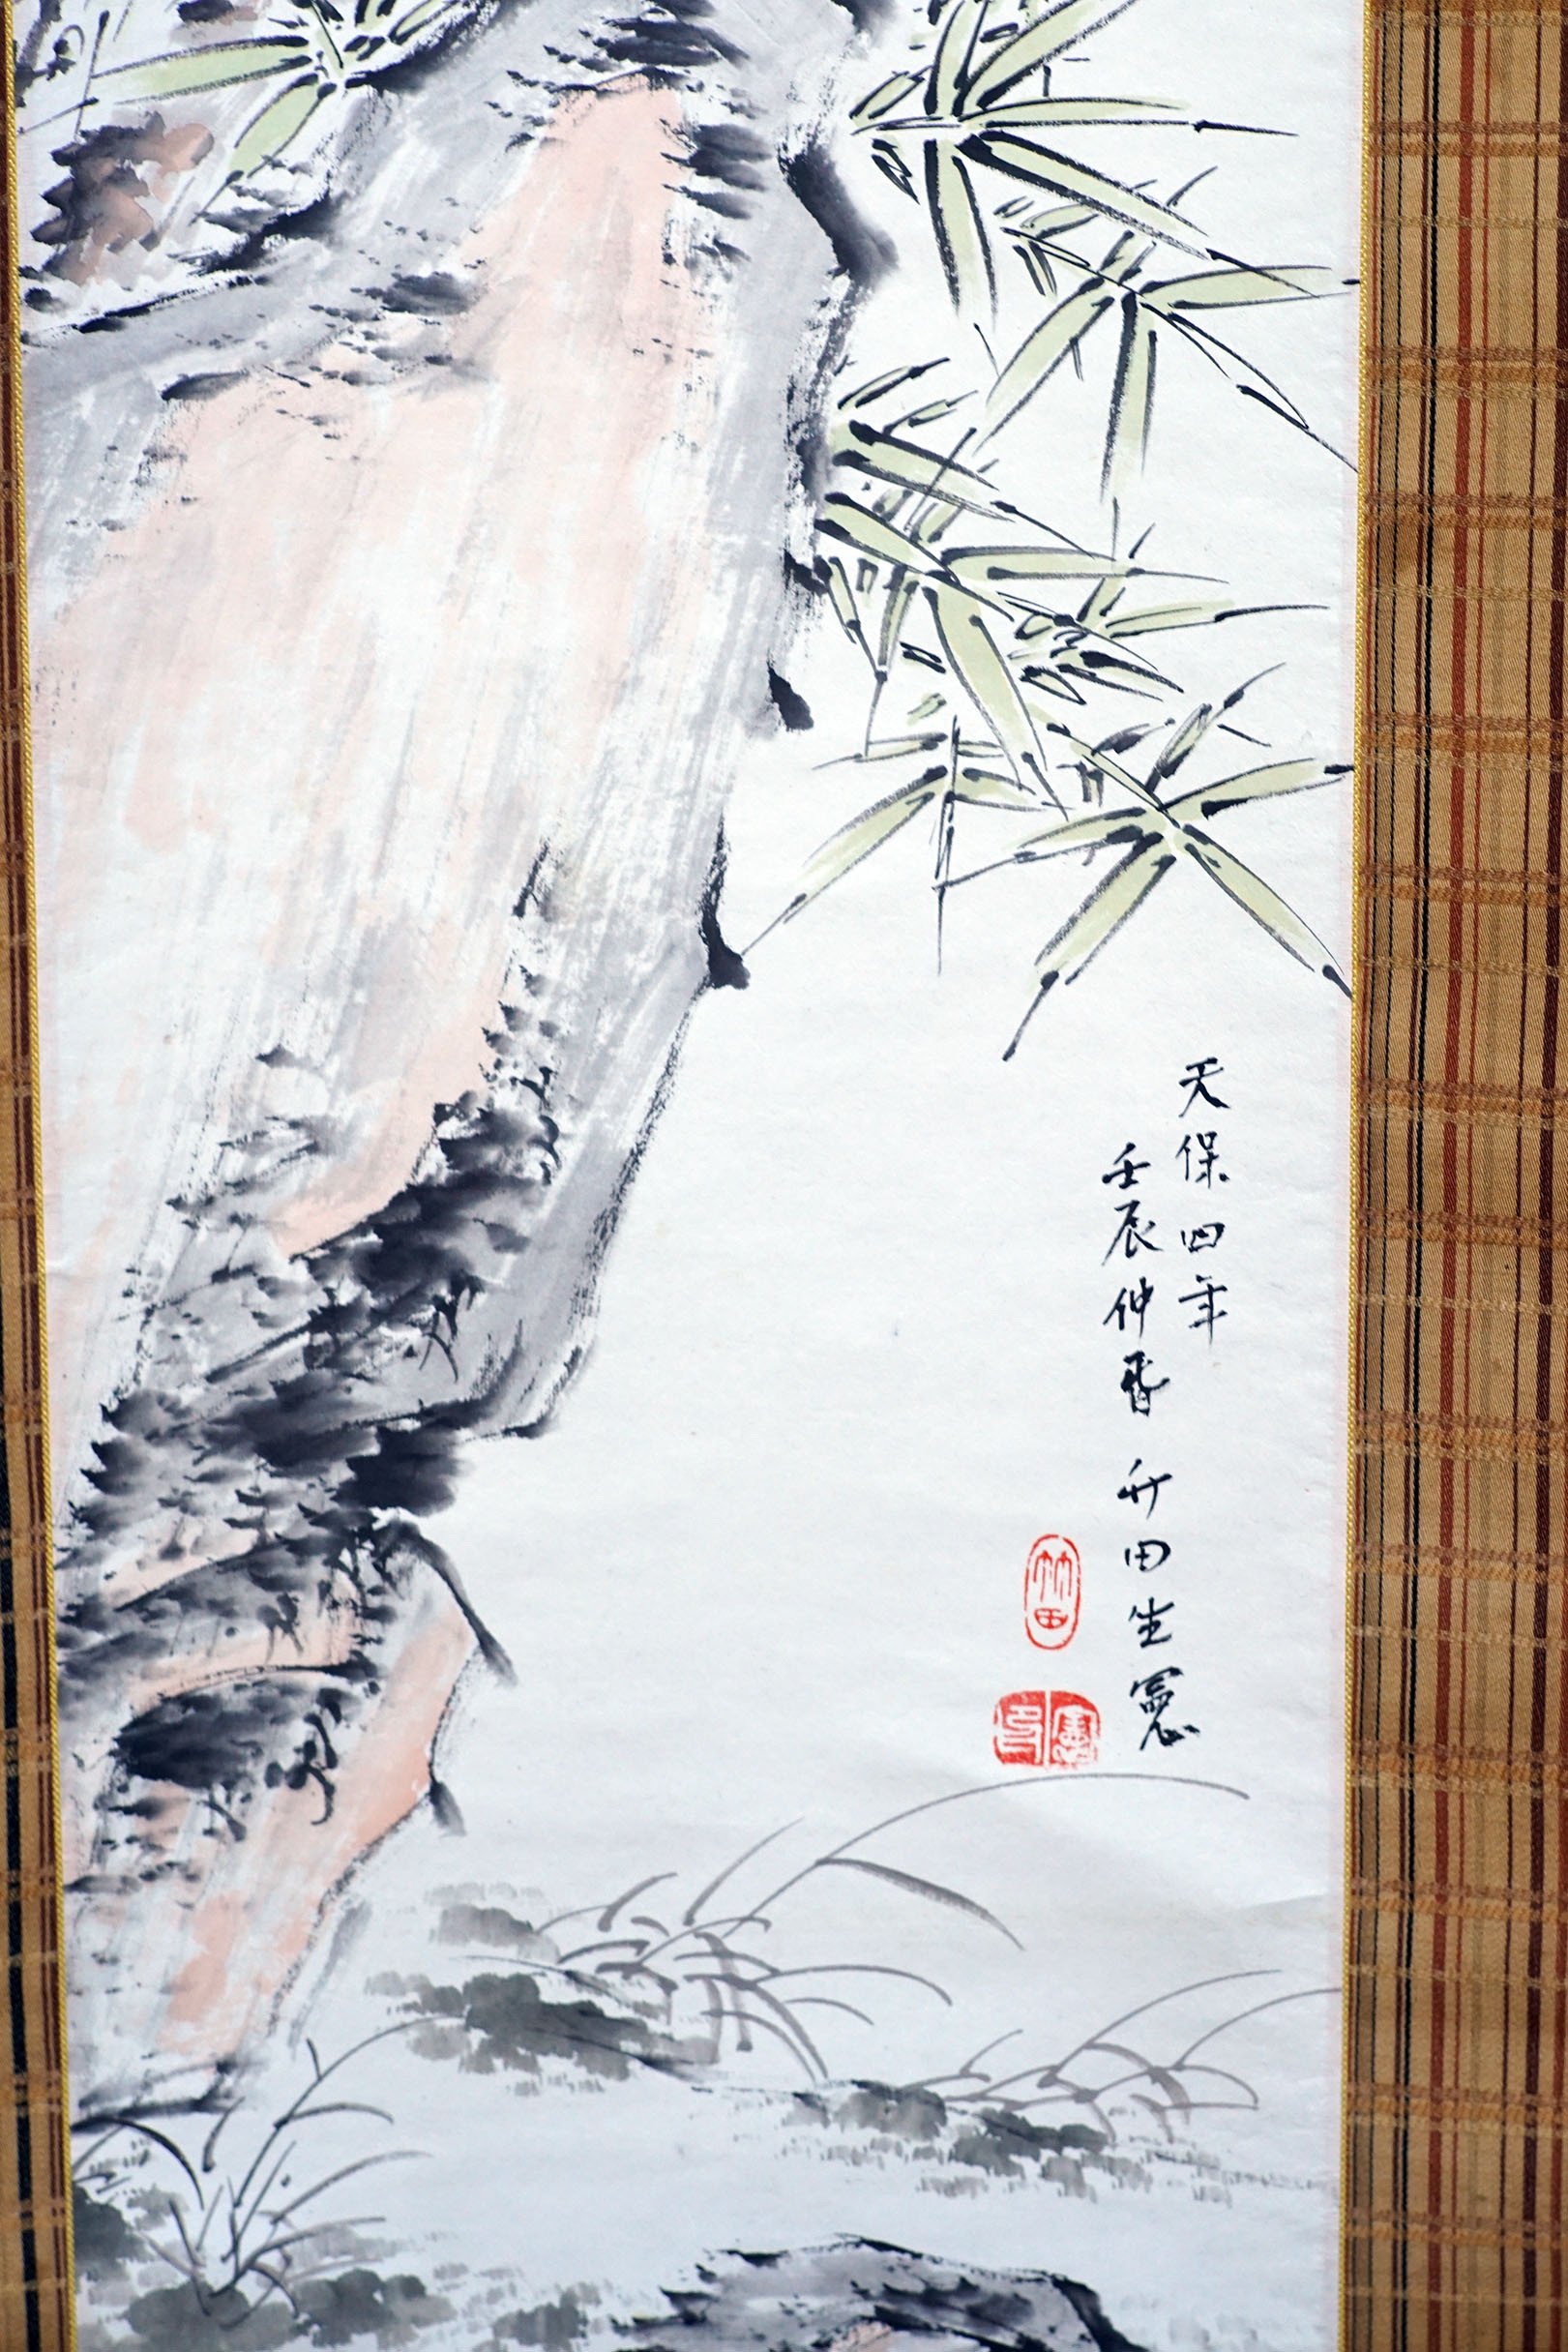 天保四年
壬辰仲春 竹田生憲
竹田
憲印